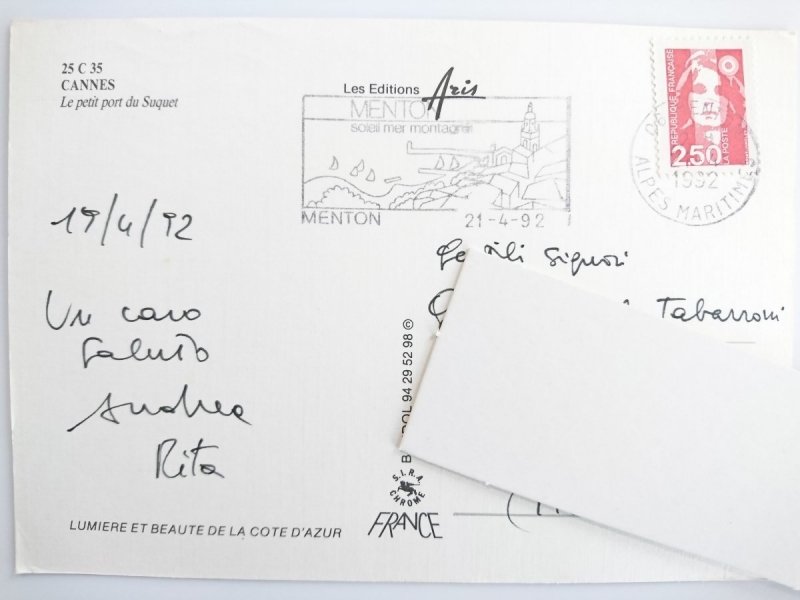 25 C 35
CANNES
Le petit port du Suquet
Les Editions Aris
MENTON
soleil mer montagne
MENTON 21-4-92
REPUBLIQUE FRANÇAISE
LA POSTE
2,50
1992
ALPES MARITIMES
19/4/92
Un caro
saluto
Andrea
Rita
Gentili Signori
Tabarroni
94 29 52 98 ©
S.I.R.A.
CHROME
FRANCE
LUMIERE ET BEAUTE DE LA COTE D'AZUR